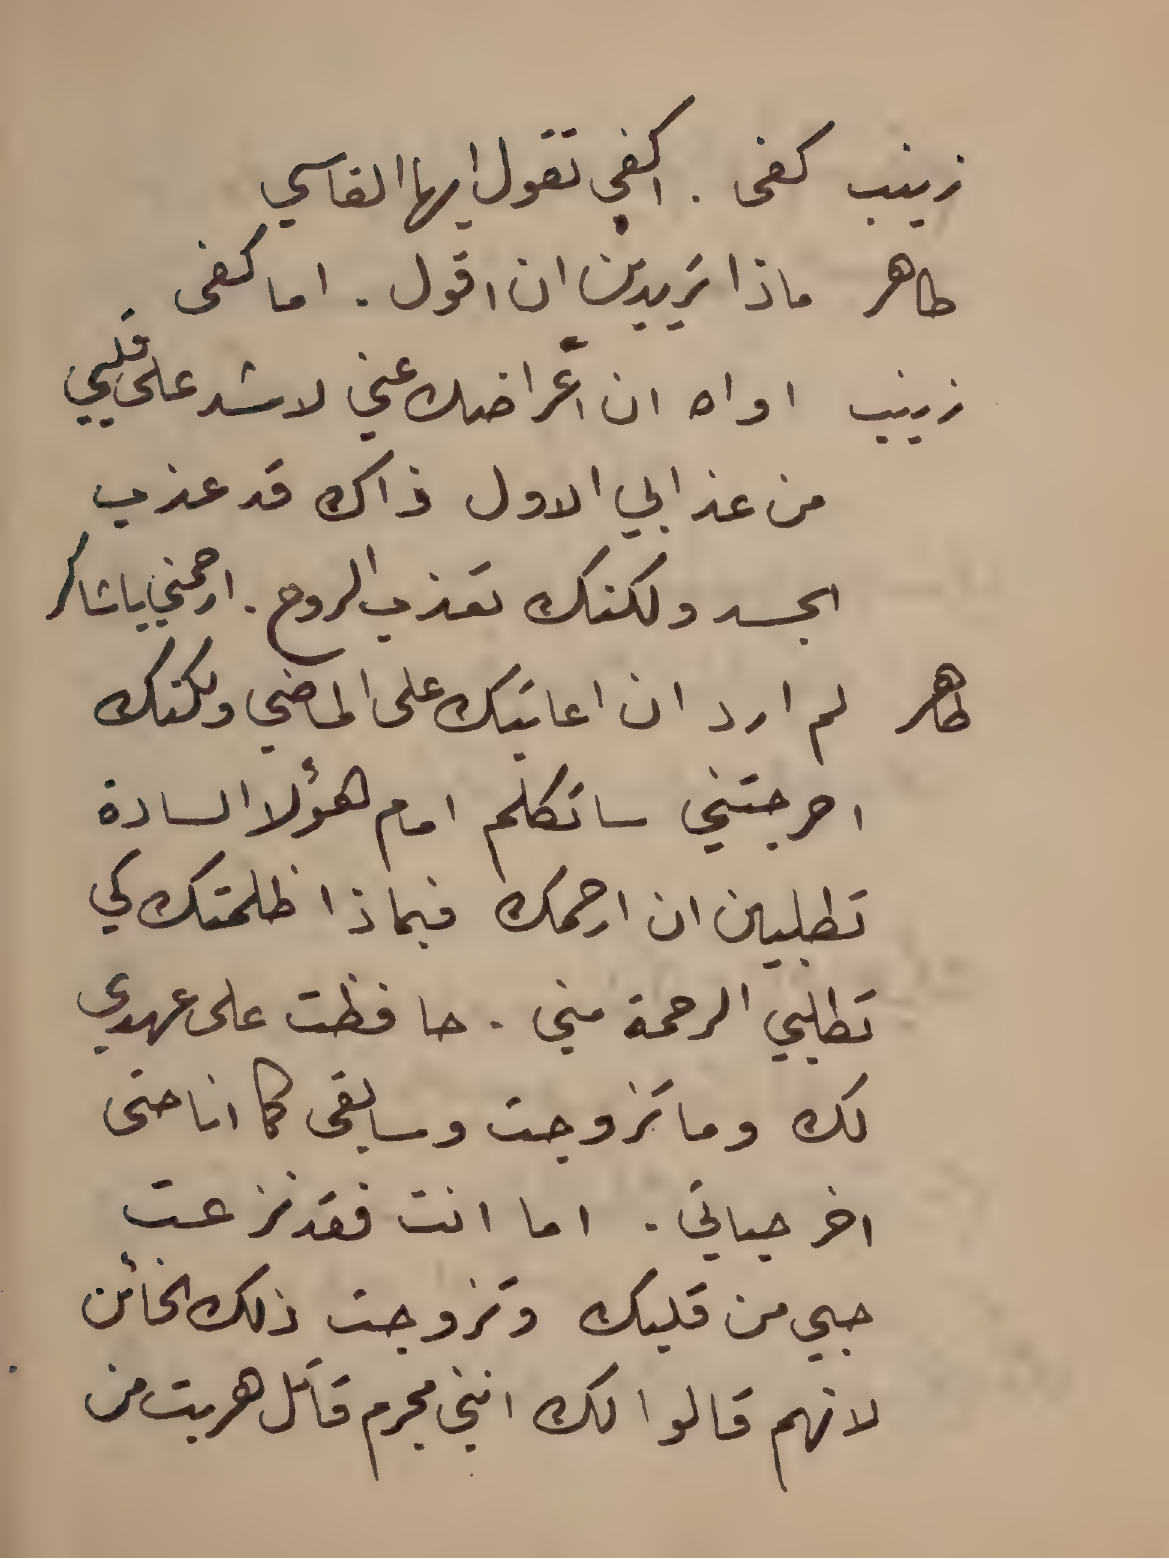 زينب كفى . اكفي تقول ايها القاسي
طاهر ماذا تريدين ان اقول . اما كفى
زينب اواه ان اعراضك عني لاشد على قلبي
من عذابي الاول ذاك قد عذب
الجسد ولكنك تعذب الروح . ارحمني يا شاكر
طاهر لم ارد ان اعاتبك على الماضي ولكنك
احرجتني ساتكلم امام هؤلا السادة
تطلبين ان ارحمك فبماذا ظلمتك كي
تطلبي الرحمة مني . حافظت على عهدي
لك وما تزوجت وسابقى كما انا حتى
اخر حياتي . اما انت فقد نزعت
حبي من قلبك وتزوجت ذلك الخائن
لانهم قالوا لك انني مجرم قاتل هربت من